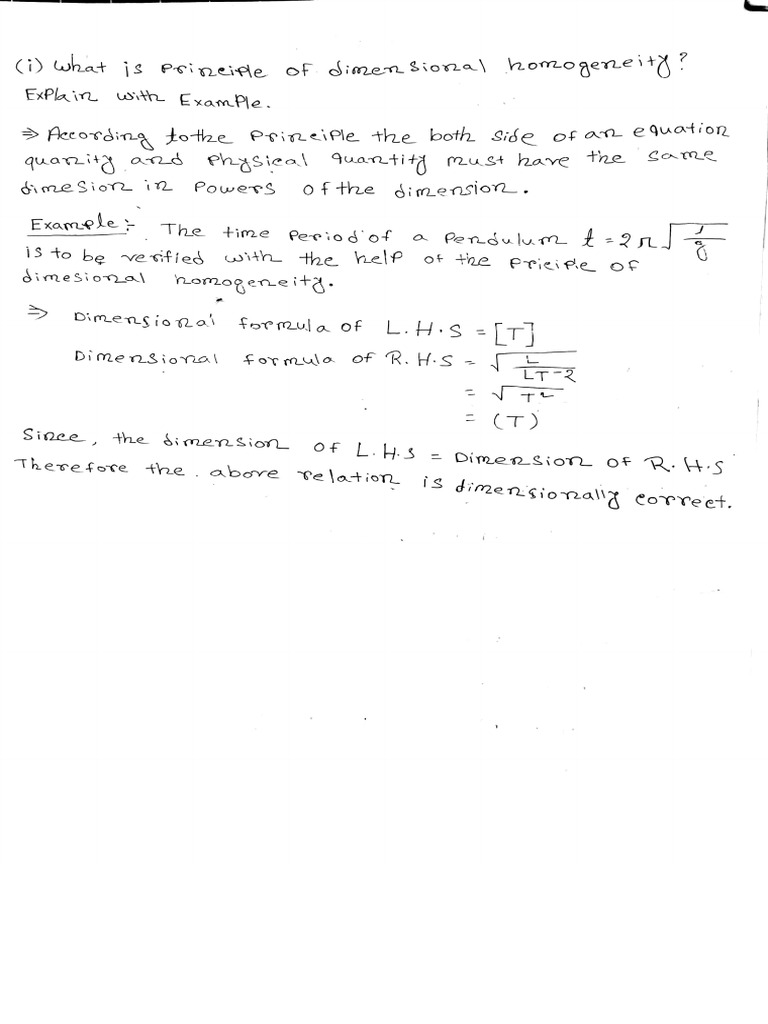 (i) What is principle of dimensional homogeneity?
Explain with Example.
⇒ According tothe principle the both side of an equation
quanity and physical quantity must have the same
dimesion in Powers of the dimension.
Example:- The time period of a pendulum t = 2π√(l/g)
is to be verified with the help of the priciple of
dimesional homogeneity.
⇒ Dimensional formula of L.H.S = [T]
Dimensional formula of R.H.S = √(L/LT-2)
= √T2
= (T)
Since, the dimension of L.H.S = Dimension of R.H.S
Therefore the above relation is dimensionally correct.